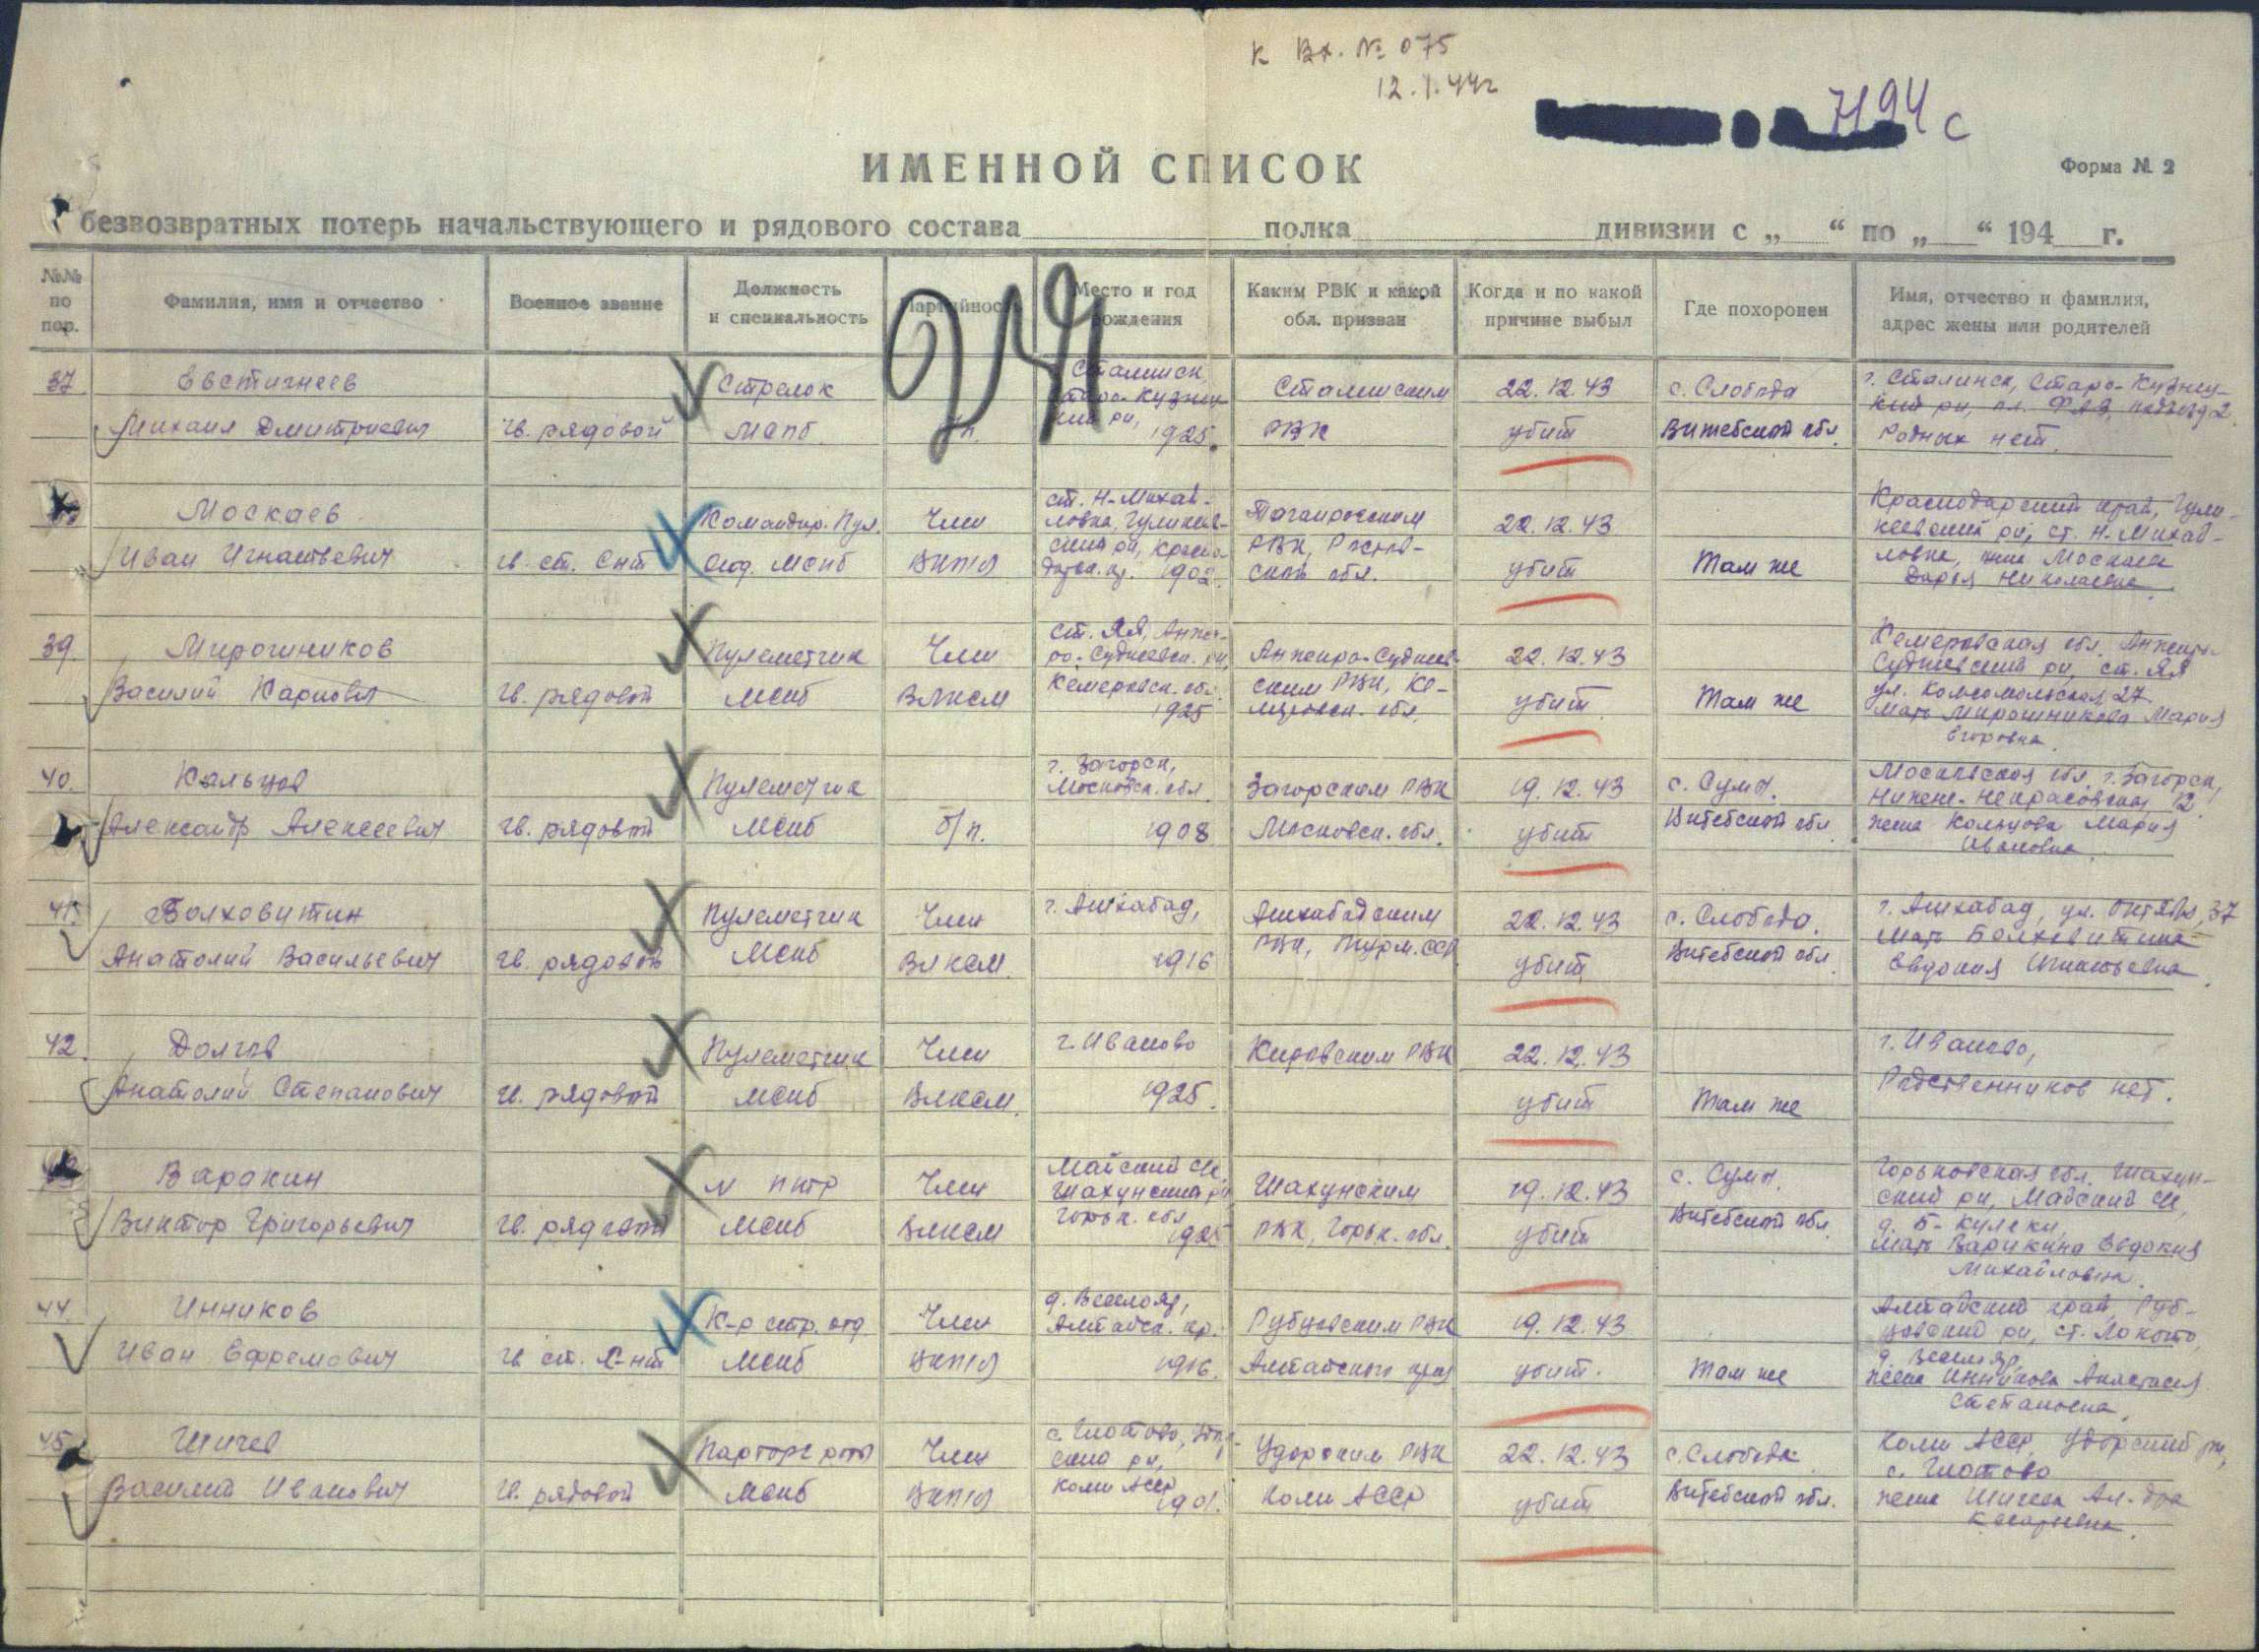 к Вх. № 075
12.1.44г
7194 с
ИМЕННОЙ СПИСОК
Форма № 2
безвозвратных потерь начальствующего и рядового состава полка дивизии с „ “ по „ “ 194 г.
№№ по пор.
Фамилия, имя и отчество
Военное звание
Должность и специальность
Партийность
Место и год рождения
Каким РВК и какой обл. призван
Когда и по какой причине выбыл
Где похоронен
Имя, отчество и фамилия, адрес жены или родителей
37 Евстигнеев Стрелок Сталинск, Сталинским 22.12.43 с. Слобода г. Сталинск, Старо-Кузнец-
Старо-Кузнец- кий рн,
Михаил Дмитриевич гв. рядовой МСПБ 1925. РВК убит Витебской обл. Родных нет.
Москаев Командир. Пул. Член ст. Н-Михай- Таганрогским 22.12.43 Краснодарский край, Гуль-
ловка, кевский рн, ст. Н-Михай-
Иван Игнатьевич гв. ст. Снт Отд. МСПБ ВКП(б) 1902. РВК, Ростов- убит Там же ловка, жена Москаева
ской обл. Дарья Николаевна.
39. Мирошников Пулеметчик Член ст. Яя, Анже- Анжеро-Суджен- 22.12.43 Кемеровская обл. Анжеро-
ро-Судженск. рн, Судженский рн, ст. Яя
Василий Карпович гв. рядовой МСПБ ВЛКСМ Кемеровск. обл. ским РВК, Ке- убит Там же ул. Комсомольская, 27
1925 меровск. обл. Мать Мирошникова Мария
Егоровна.
40. Кальцов Пулеметчик г. Загорск, Загорским РВК 19.12.43 с. Сумы. Московская обл, г. Загорск,
Московск. обл. Ниже-Некрасовская, 12
Александр Алексеевич гв. рядовой МСПБ б/п. 1908 Московск. обл. убит Витебской обл. жена Кальцова Мария
Ивановна.
41. Болховитин Пулеметчик Член г. Ашхабад, Ашхабадским 22.12.43 с. Слобода. г. Ашхабад, ул. Октября, 37
Мать Болховитина
Анатолий Васильевич гв. рядовой МСПБ ВЛКСМ. 1916 РВК, Турм. ССР убит Витебской обл. Евдокия Игнатьевна.
42. Долгов Пулеметчик Член г. Иваново Кировским РВК 22.12.43 г. Иваново,
Анатолий Степанович гв. рядовой МСПБ ВЛКСМ. 1925. убит Там же Родственников нет.
Варакин Член Майский с/с Шахунским 19.12.43 с. Сумы. Горьковская обл. Шахун-
Шахунский рн, ский рн, Майский с/с,
Виктор Григорьевич гв. рядовой МСПБ ВЛКСМ Горьк. обл. 1925 РВК, Горьк. обл. убит Витебской обл. д. Б-Кулеки,
Мать Варакина Евдокия
Михайловна.
44. Инников К-р стр. отд. Член д. Веселояр, Рубцовским РВК 19.12.43 Алтайский край, Руб-
Алтайск. кр. цовский рн, ст. Локоть,
Иван Ефремович гв. ст. С-нт МСПБ ВКП(б) 1916. Алтайского края убит. Там же д. Веселояр,
жена Инникова Анастасия
Степановна.
45. Шичев Парторг роты Член с. Глотово, Удорским РВК 22.12.43 с. Слобода Коми АССР, Удорский рн,
ский рн, с. Глотово
Василий Иванович гв. рядовой МСПБ ВКП(б) Коми АССР 1901. Коми АССР убит Витебской обл. жена Шичева Ал-дра